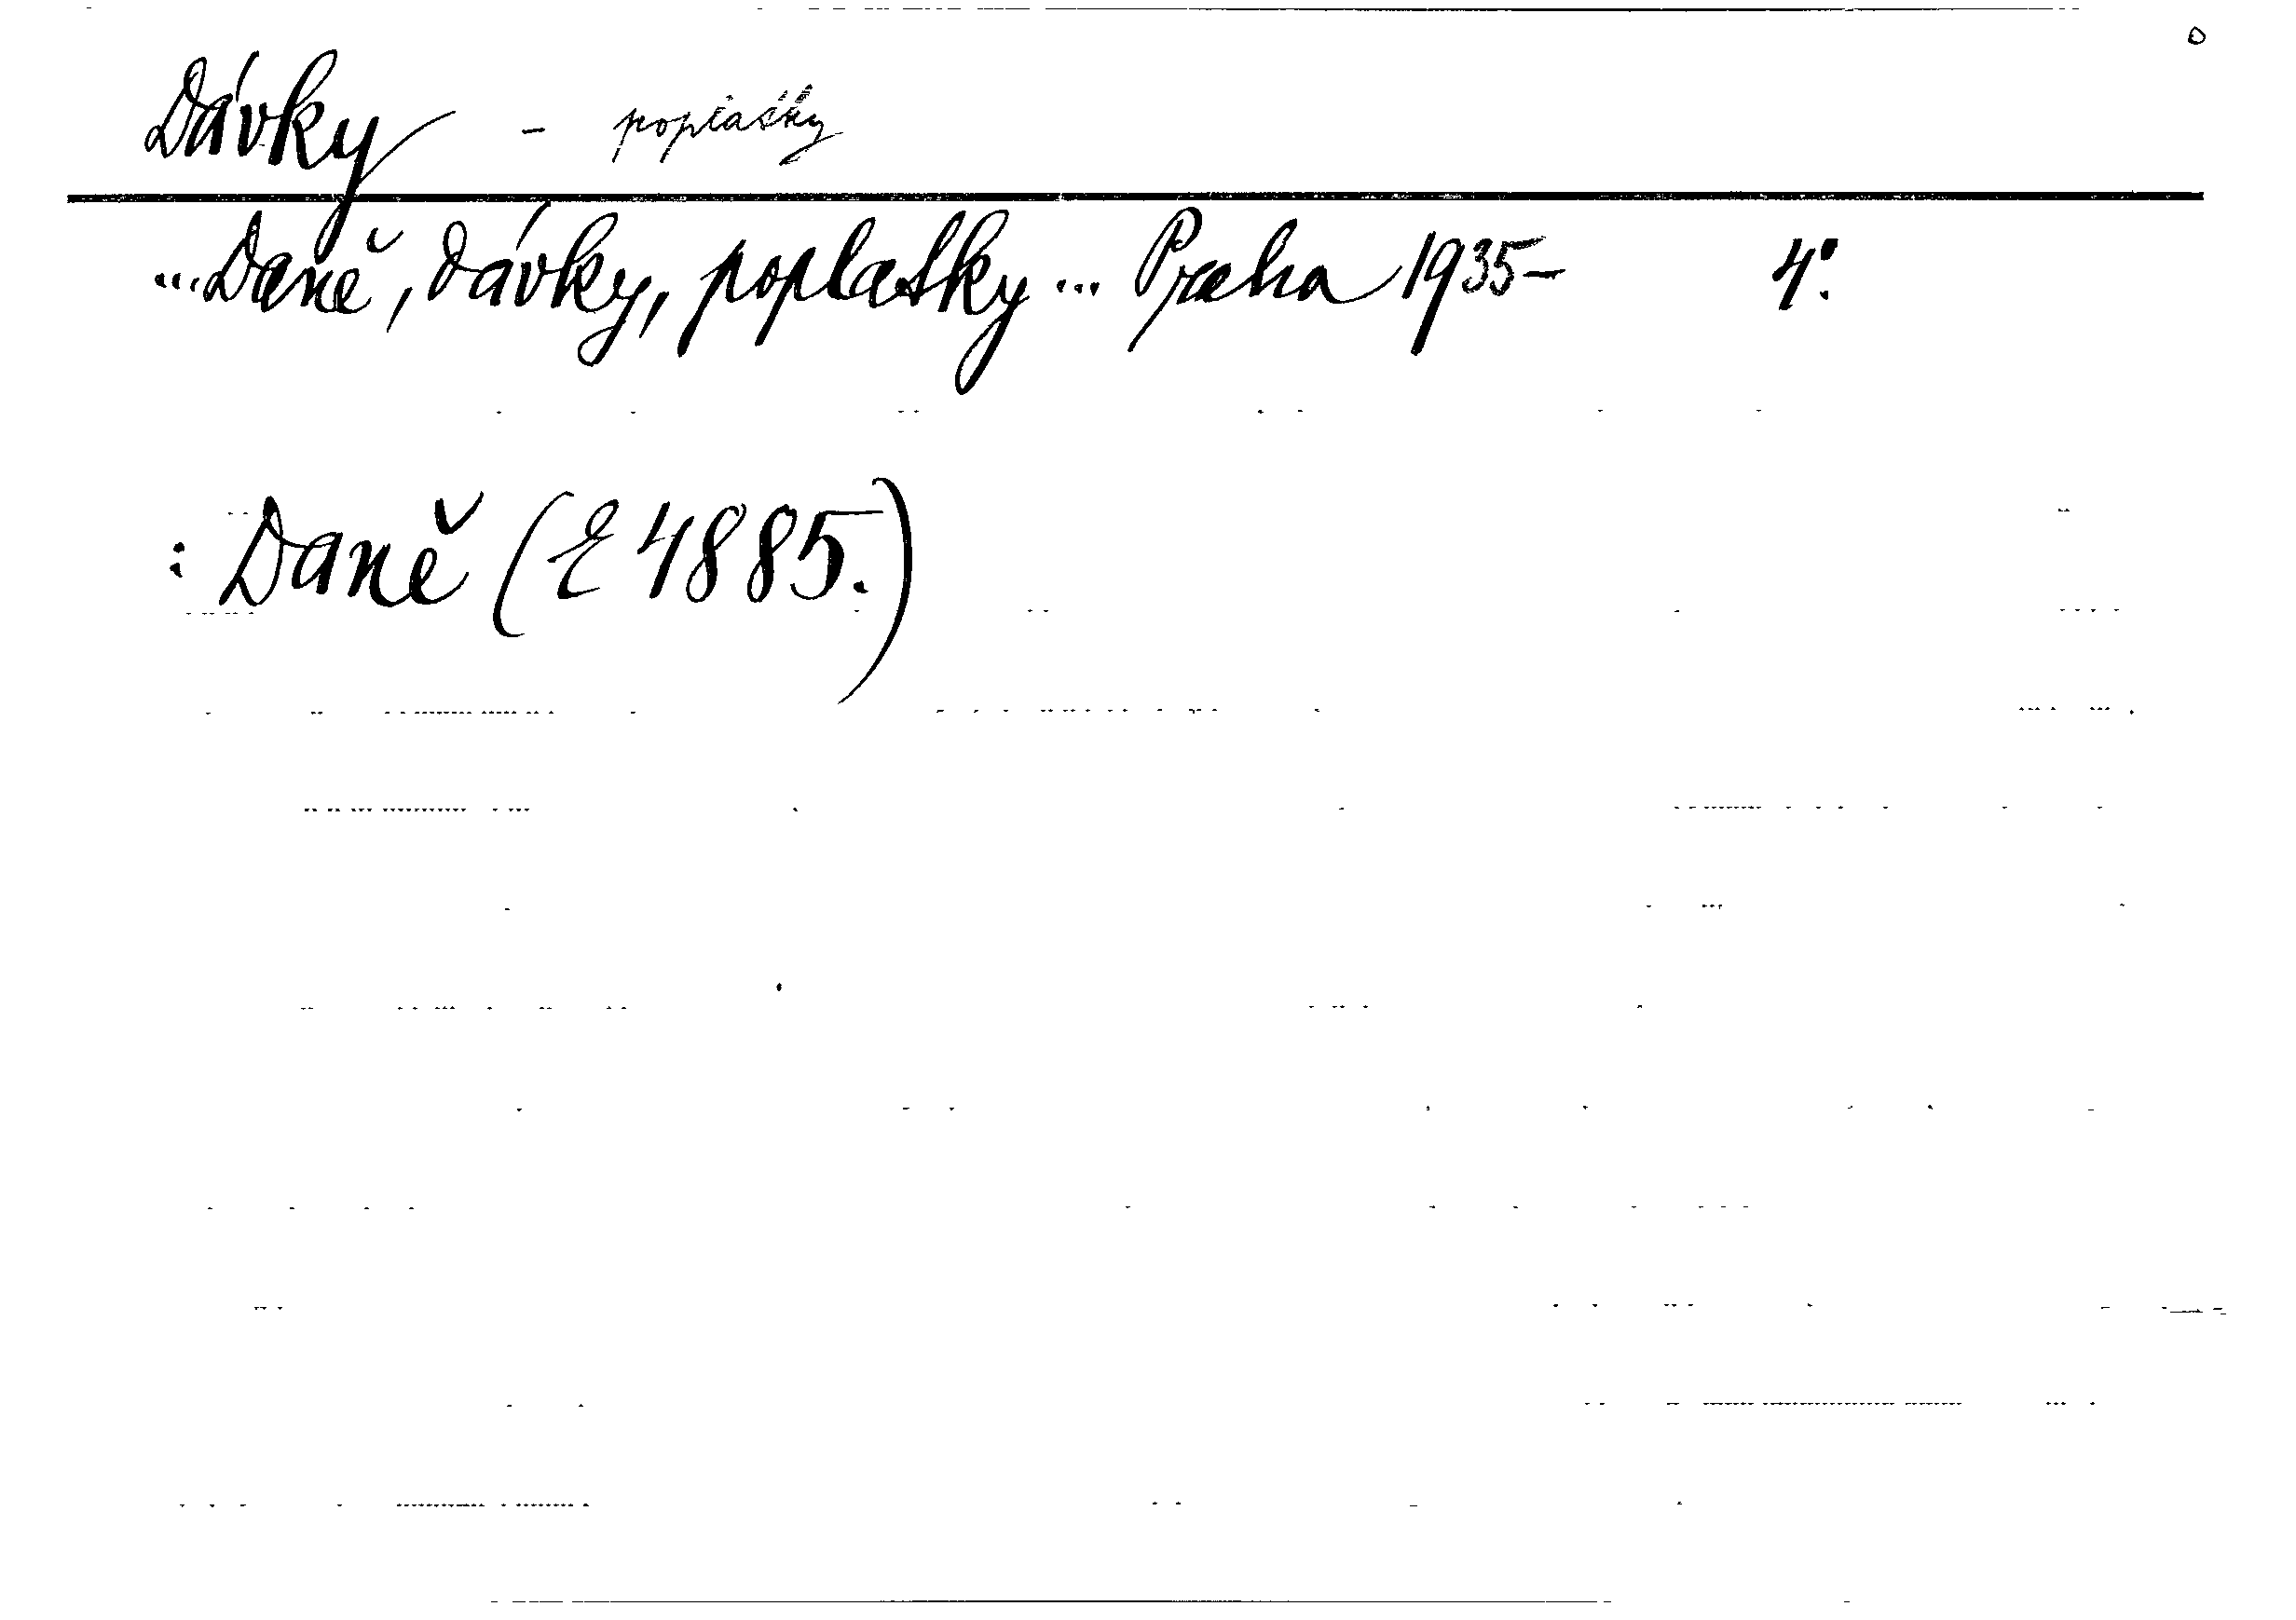 Dávky - poplatky
...Daně, dávky, poplatky... Praha 1935- 4°.
: Daně (E 4885.)